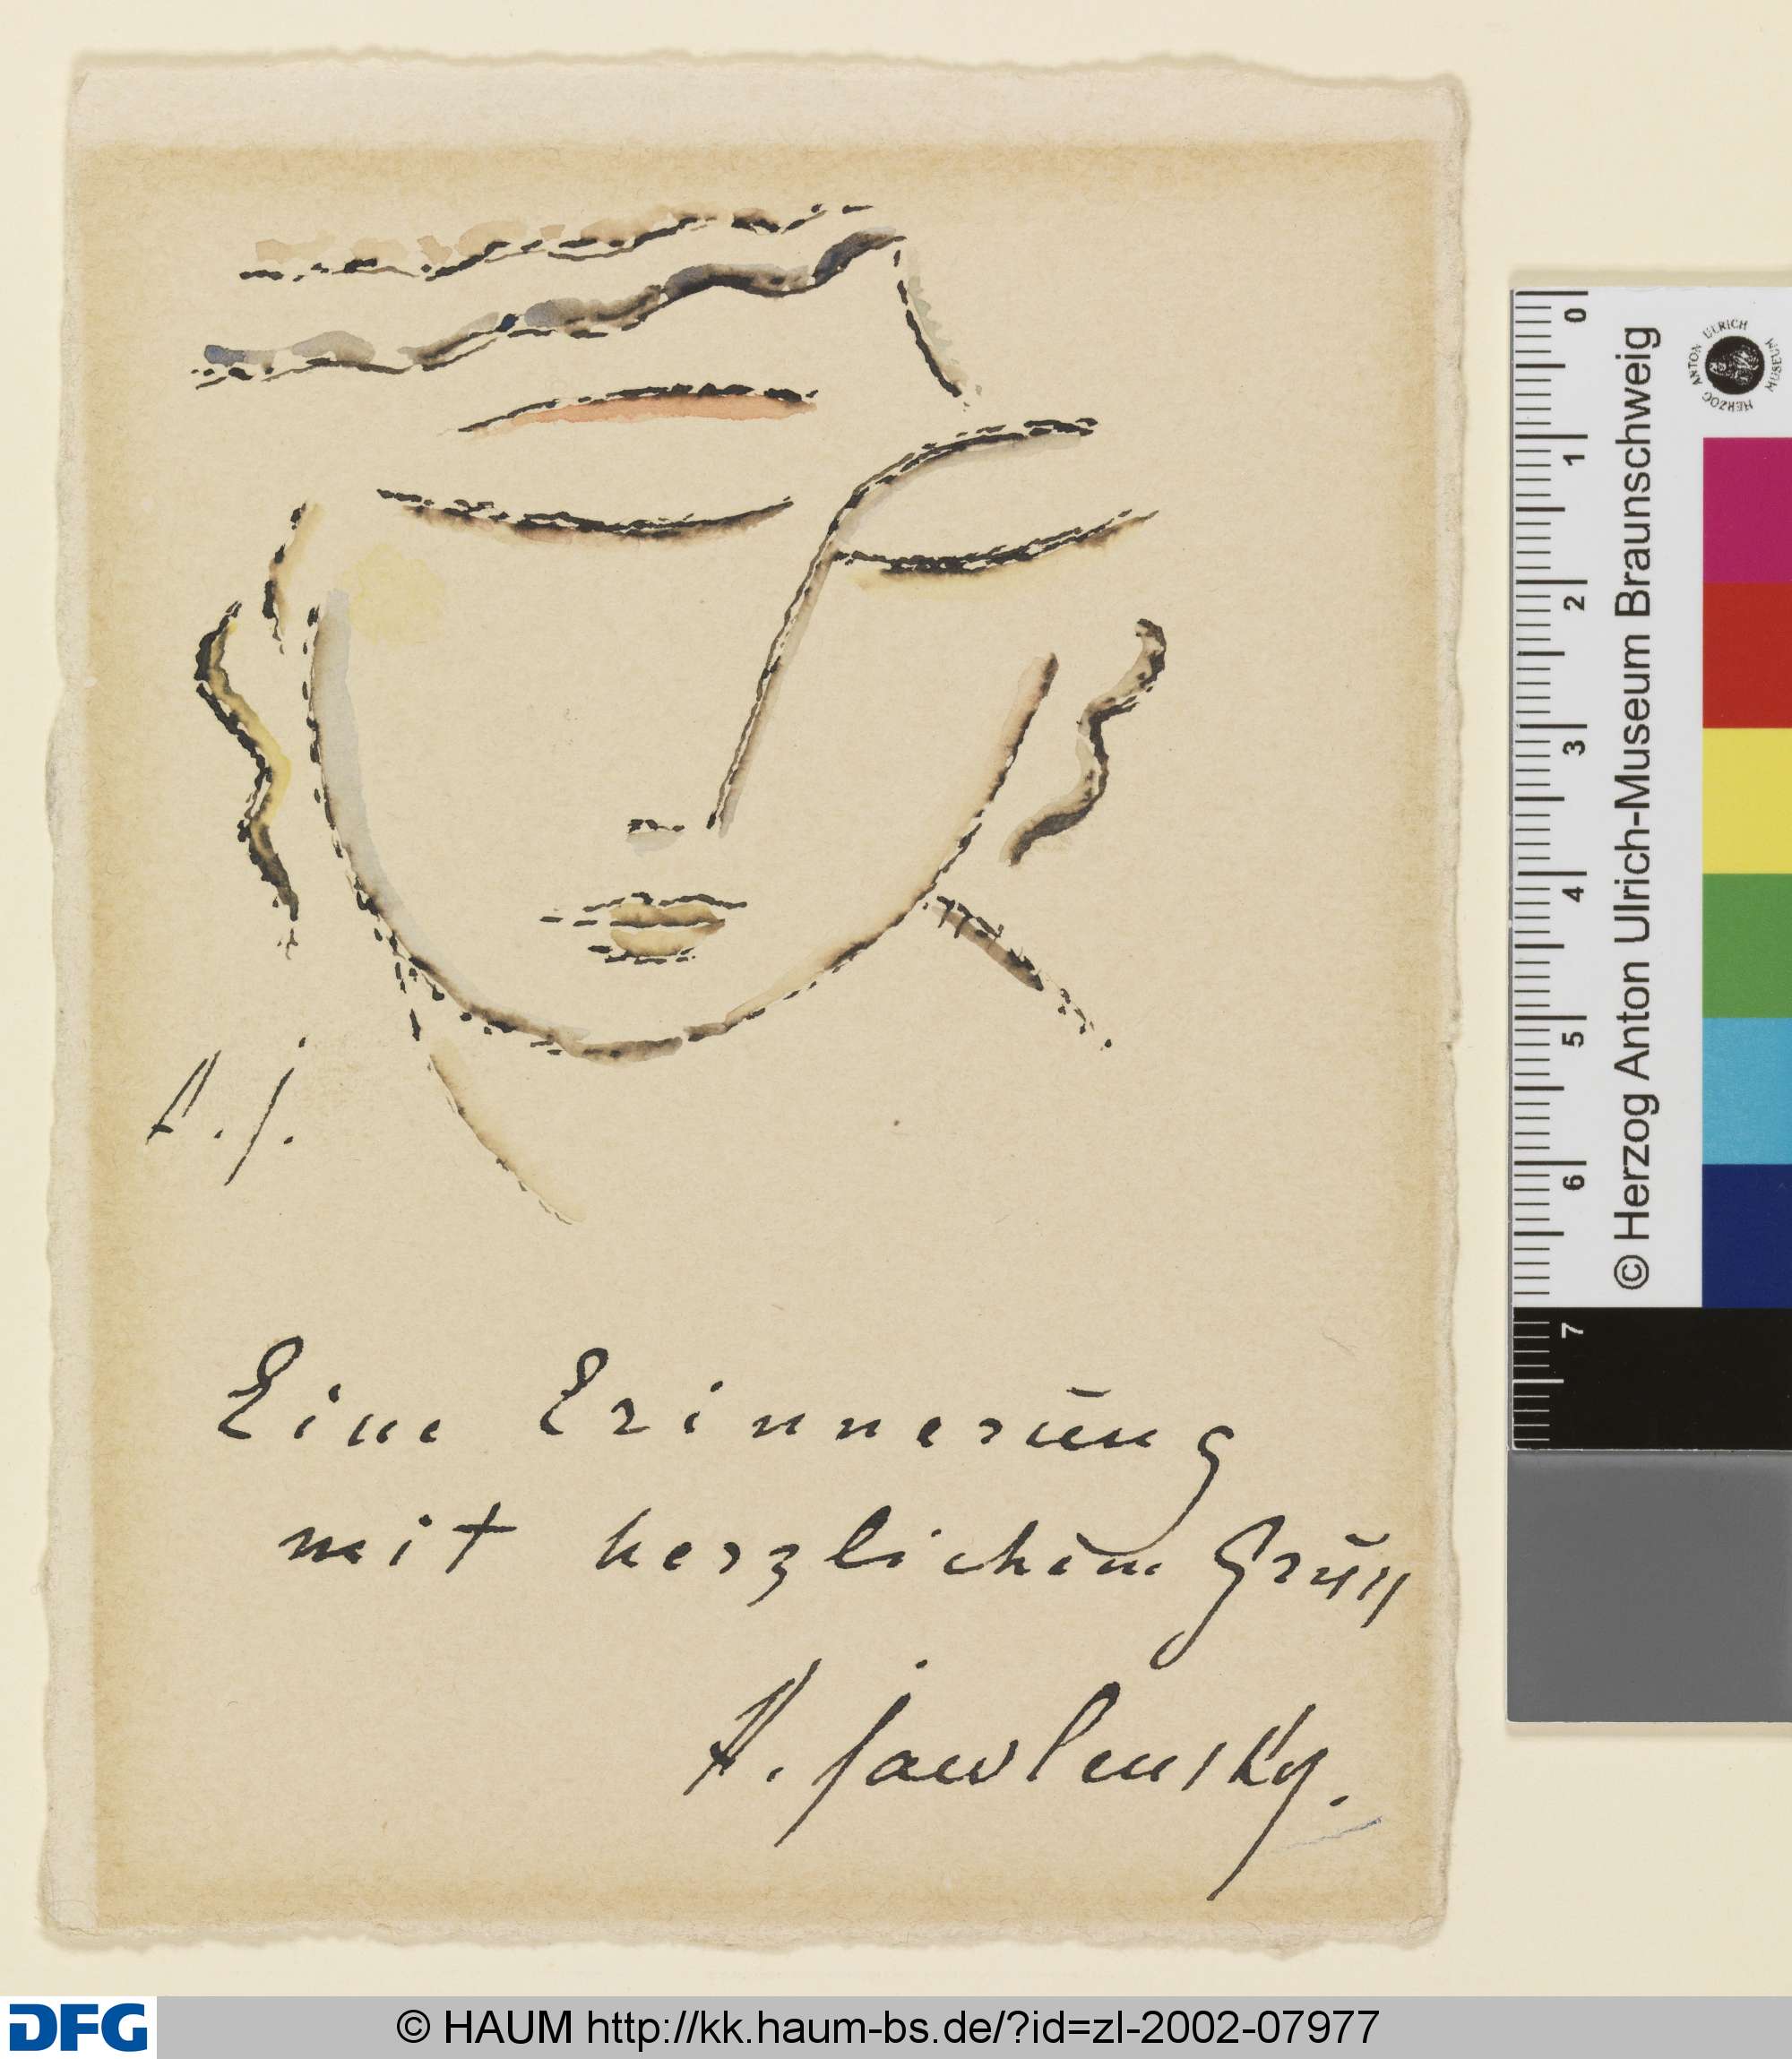 A. j.
Eine Erinnerung
mit herzlichem Gruss
A. Jawlensky.
0 1 2 3 4 5 6 7
© Herzog Anton Ulrich-Museum Braunschweig
HERZOG ANTON ULRICH MUSEUM
DFG
© HAUM http://kk.haum-bs.de/?id=zl-2002-07977